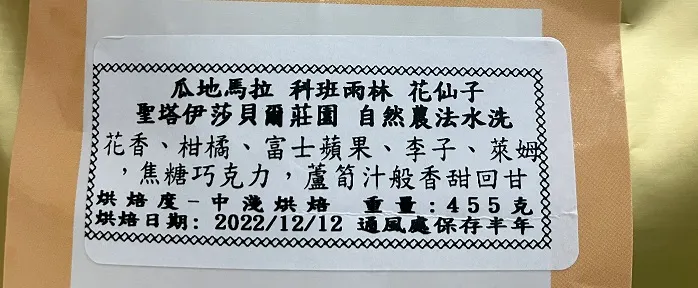 瓜地馬拉 科班雨林 花仙子
聖塔伊莎貝爾莊園 自然農法水洗
花香、柑橘、富士蘋果、李子、萊姆
，焦糖巧克力，蘆筍汁般香甜回甘
烘焙度-中淺烘焙 重量:455克
烘焙日期: 2022/12/12 通風處保存半年